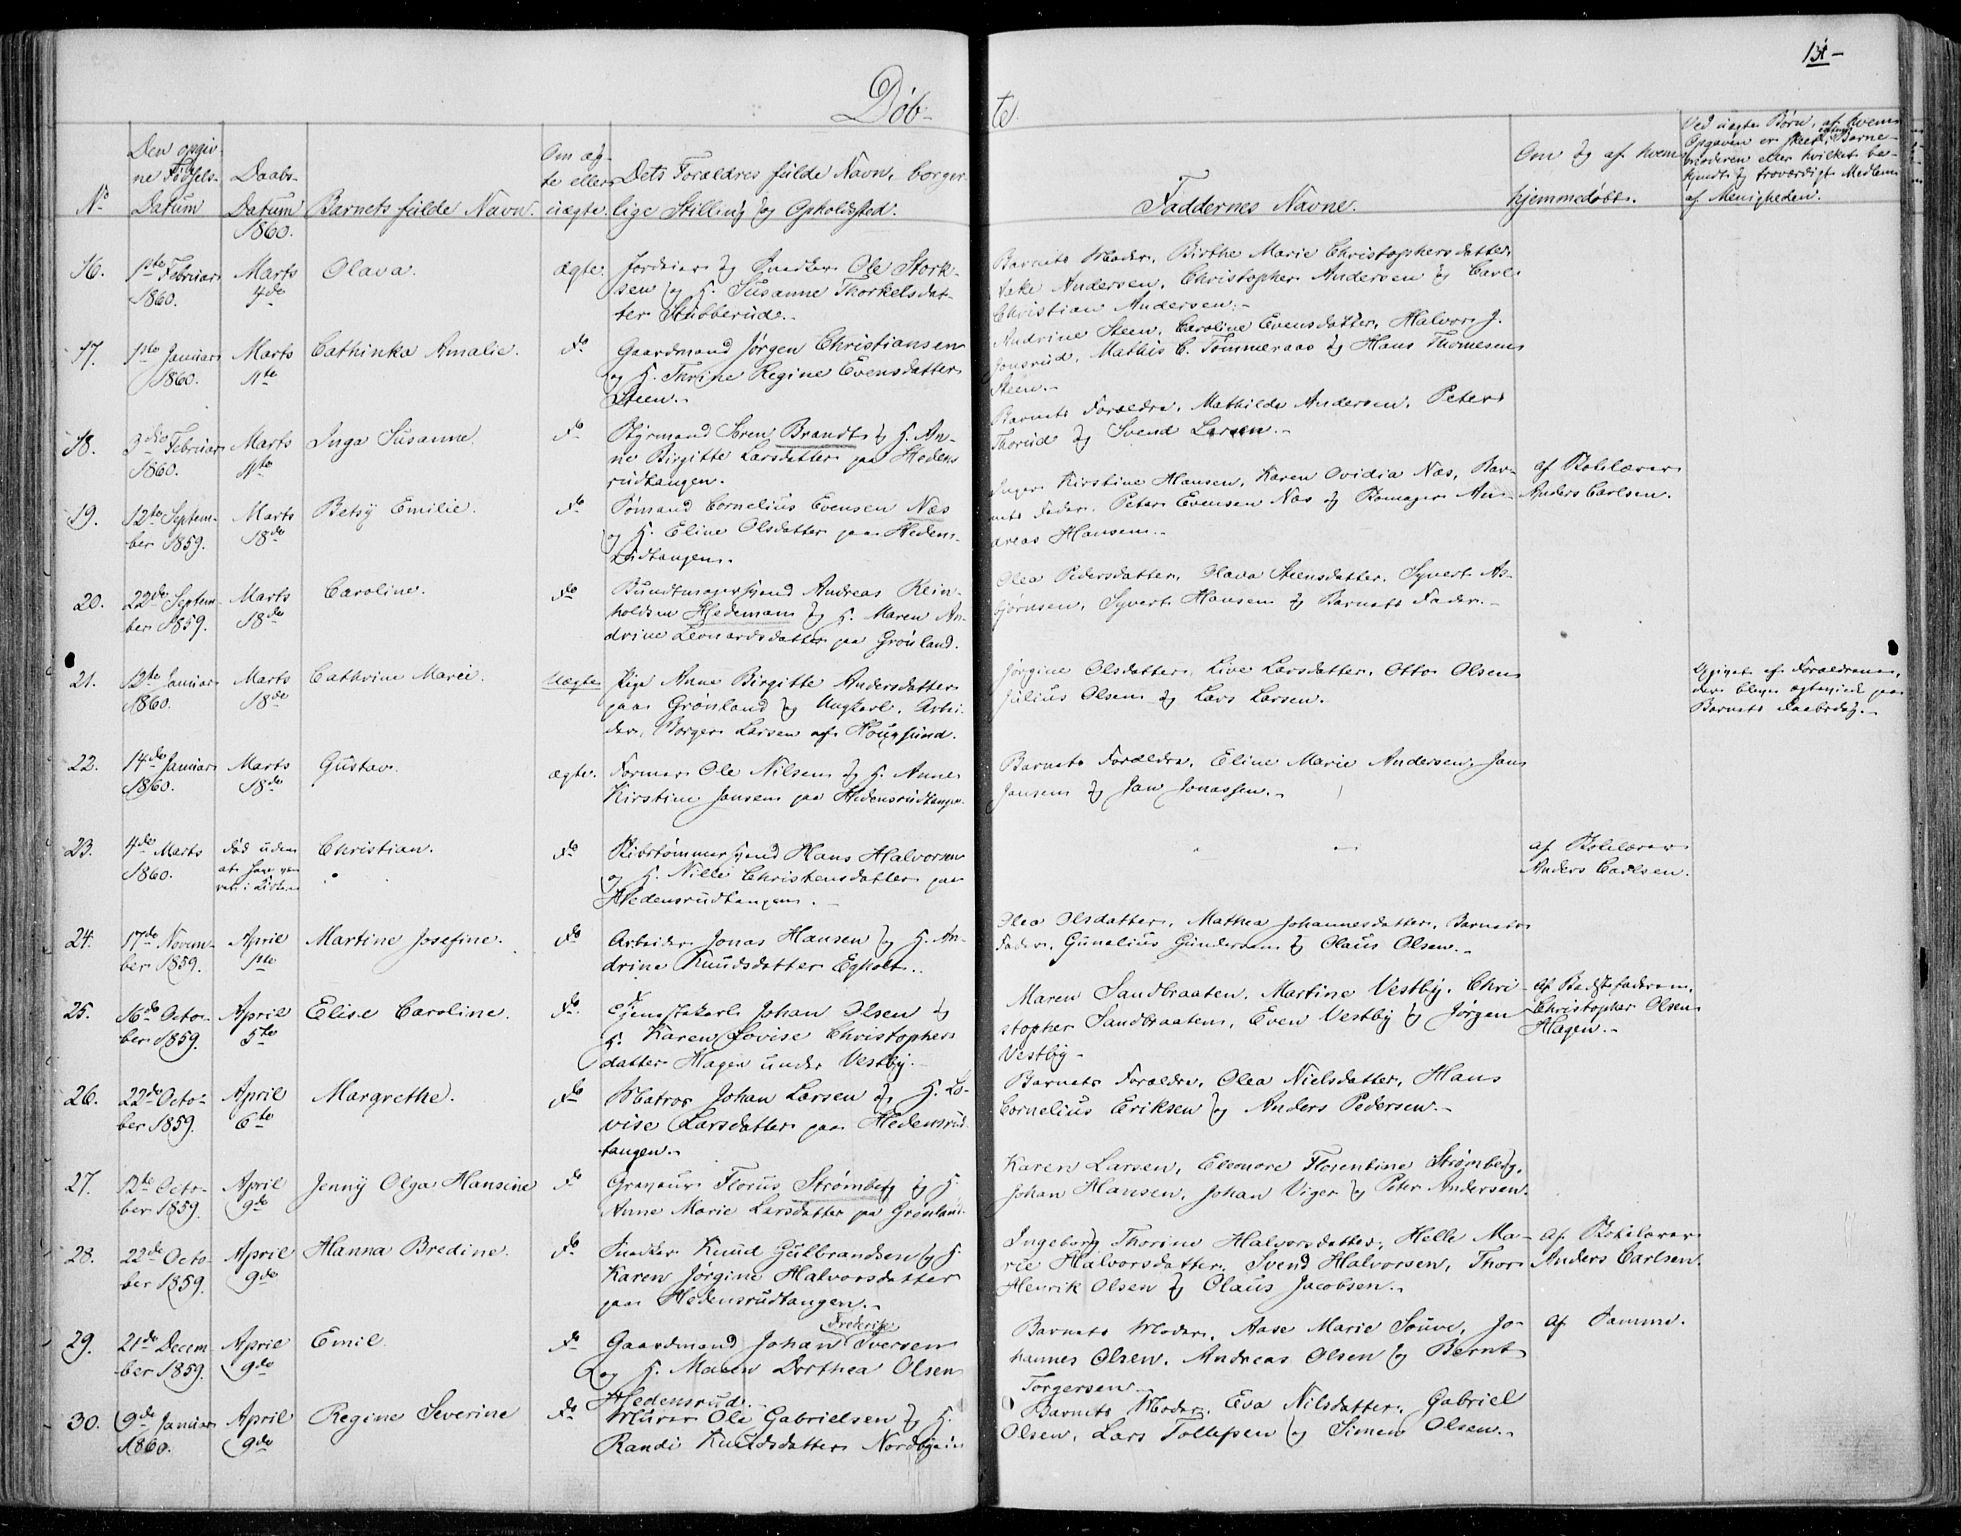 131-
Døb-
te.
No
Den opgiv-
ne Fødsels-
Datum
Daabs-
Datum
1860.
Barnets fulde Navn.
Om æg-
te eller
uægte.
Dets Forældres fulde Navn, borger-
lige Stilling og Opholdssted.
Faddernes Navne.
Om og af hvem
hjemmedøbt.
Ved uægte Børn, af hvem
Opgaven er skeet, Barne-
moderen eller hvilket be-
kjendt og troværdigt Medlem
af Menigheden.
16. 1ste Februar Marts Olava. ægte. Ole Stork-
1860. 4de sen og H. Susanne Thorkelsdat-
ter Stubberud.
Barnets Moder, Birthe Marie Christophersdatter
Andersen, Christopher Andersen og Carl
Christian Andersen.-
17. 1ste Januar Marts Cathinka Amalie. Do Gaardmand Jørgen Christiansen
1860. 11te og H. Thrine Regine Evensdatter
Steen.-
Andrine Steen, Caroline Evensdatter, Halvor J.
Jonsrud, Mathis C. Tømmeraas og Hans Thomesen
Steen.-
18. 3die Februar Marts Inga Susanne. Do Styrmand Søren Brandt og H. An-
1860. 11te ne Birgitte Larsdatter paa Hedens
rudtangen.
Barnets Forældre, Mathilde Andersen, Peter
Thorud og Svend Larsen.-
19. 12te Septem- Marts Betsy Emilie. Do Sømand Cornelius Evensen Næs
ber 1859. 18de og H. Eline Olsdatter paa Hedens-
rudtangen.
Inger Kirstine Hansen, Karen Ovidia Næs, Bar-
nets Fader, Peter Evensen Næs og An-
dreas Hansen.-
af Skolelærer
Anders Carlsen.
20. 22de Septem- Marts Caroline. Do Bundtmagersvend Andreas Rein-
ber 1859. 18de holdsen Hedeman og H. Maren An-
drine Leonardsdatter paa Grønland.
Olea Pedersdatter, Olava Steensdatter, Syvert As-
bjørnsen, Syvert Hansen og Barnets Fader.-
21. 12te Januar Marts Cathrine Marie. Uægte Pige Anne Birgitte Andersdatter
1860. 18de paa Grønland og Ungkarl, Arbei-
der, Borger Larsen af Hougsund.
Jørgine Olsdatter, Live Larsdatter, Otto Olsen
Julius Olsen og Lars Larsen.
Opgivet af Forældrene,
der bleve ægteviede paa
Barnets Daabsdag.-
22. 14de Januar Marts Gustav. ægte. Former Ole Nilsen og H. Anne
1860. 18de Kirstine Jansen paa Hedensrudtangen.
Barnets Forældre, Eline Marie Andersen, Jans
Jansen og Jan Jonassen.-
23. 4de Marts Død uden Christian. Do Skibstømmersvend Hans Halvorsen
1860. at have væ- og H. Nille Christensdatter paa
ret i Kirken Hedensrudtangen.-
af Skolelærer
Anders Carlsen.
24. 17de Novem- April Martine Josefine. Do Arbeider Jonas Hansen og H. An-
ber 1859. 1ste drine Knudsdatter Egholt.
Olea Olsdatter, Mathea Johannesdatter, Barnets
Fader, Gunelius Gundersen og Olaus Olsen.-
25. 16de Octo- April Elise Caroline. Do Tjenestekarl Johan Olsen og
ber 1859. 5te H. Karen Lovise Christophers
datter Hagen under Vestby.-
Maren Sandbraaten, Martine Vestby, Chri-
stopher Sandbraaten, Even Vestby og Jørgen
Vestby-
af Bedstefaderen,
Christopher Olsen
Hagen.-
26. 22de Octo- April Margrethe. Do Matros Johan Larsen og H. Lo-
ber 1859. 6te vise Larsdatter paa Hedensrud
tangen.-
Barnets Forældre, Olea Nielsdatter, Hans
Cornelius Eriksen og Anders Pedersen.-
27. 12te Octo- April Jenny Olga Hansine Do Graveur Florus Strømberg og H.
ber 1859. 9de Anne Marie Larsdatter paa Grønland.
Karen Larsen, Eleonore Florentine Strømberg,
Johan Hansen, Johan Viger og Peter Andersen.
28. 22de Octo- April Hanna Bredine. Do Snedker Knud Gulbrandsen og H.
ber 1859. 9de Karen Jørgine Halvorsdatter
paa Hedensrudtangen.-
Ingeborg Thorine Halvorsdatter, Helle Ma-
rie Halvorsdatter, Svend Halvorsen, Thor
Henrik Olsen og Olaus Jacobsen.-
af Skolelærer
Anders Carlsen.
29. 21de Decem April Emil. Do Gaardmand Johan Frederik Iversen
ber 1859. 9de og H. Maren Dorthea Olsen
Hedensrud.-
Barnets Moder, Aase Marie Souve, Jo-
hannes Olsen, Andreas Olsen og Bernt
Torgersen-
af Samme.
30. 9de Januar April Regine Severine Do Murer Ole Gabrielsen og H.
1860. 9de Randi Knudsdatter
Barnets Moder, Eva Nilsdatter, Gabriel
Olsen, Lars Tollefsen og Simen Olsen.-